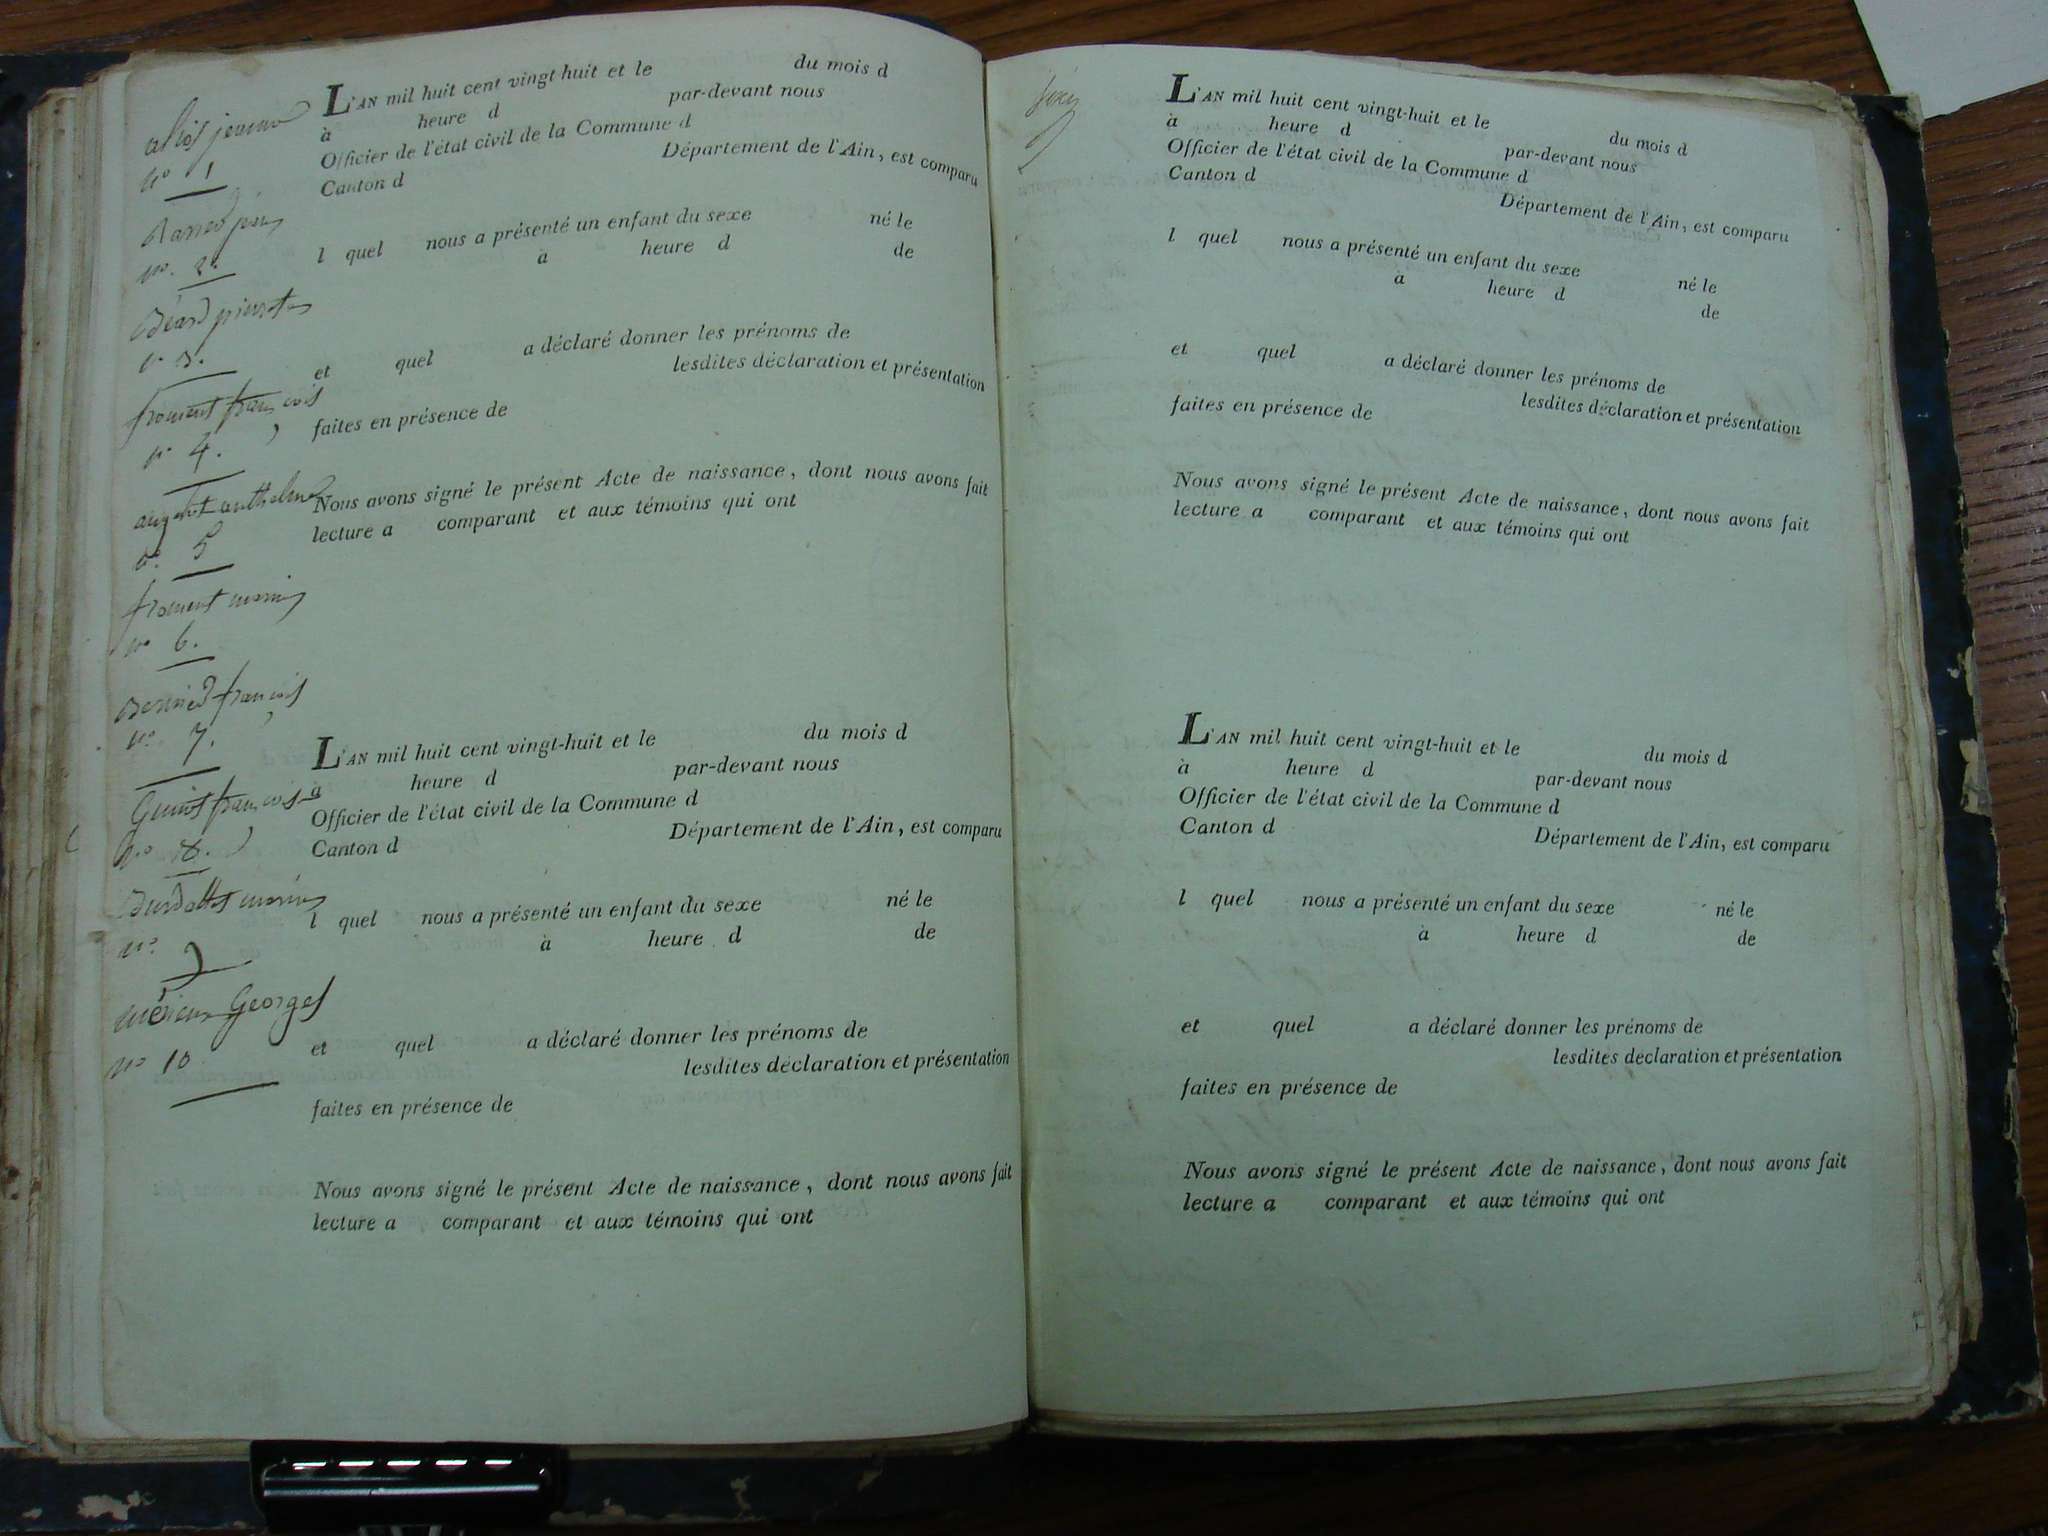 jeanne
nº 1
nº 2.
nº 3.
froment françois
nº 4.
anthelme
nº 5
froment marie
nº 6.
françois
nº 7.
françois
nº 8.
marie
nº 9
Georges
nº 10
L'AN mil huit cent vingt-huit et le du mois d
à heure d par-devant nous
Officier de l'état civil de la Commune d
Canton d Département de l'Ain, est comparu
l quel nous a présenté un enfant du sexe né le
à heure d de
et quel a déclaré donner les prénoms de
lesdites déclaration et présentation
faites en présence de
Nous avons signé le présent Acte de naissance, dont nous avons fait
lecture a comparant et aux témoins qui ont
L'AN mil huit cent vingt-huit et le du mois d
à heure d par-devant nous
Officier de l'état civil de la Commune d
Canton d Département de l'Ain, est comparu
l quel nous a présenté un enfant du sexe né le
à heure d de
et quel a déclaré donner les prénoms de
lesdites déclaration et présentation
faites en présence de
Nous avons signé le présent Acte de naissance, dont nous avons fait
lecture a comparant et aux témoins qui ont
L'AN mil huit cent vingt-huit et le du mois d
à heure d par-devant nous
Officier de l'état civil de la Commune d
Canton d Département de l'Ain, est comparu
l quel nous a présenté un enfant du sexe né le
à heure d de
et quel a déclaré donner les prénoms de
lesdites déclaration et présentation
faites en présence de
Nous avons signé le présent Acte de naissance, dont nous avons fait
lecture a comparant et aux témoins qui ont
L'AN mil huit cent vingt-huit et le du mois d
à heure d par-devant nous
Officier de l'état civil de la Commune d
Canton d Département de l'Ain, est comparu
l quel nous a présenté un enfant du sexe né le
à heure d de
et quel a déclaré donner les prénoms de
lesdites déclaration et présentation
faites en présence de
Nous avons signé le présent Acte de naissance, dont nous avons fait
lecture a comparant et aux témoins qui ont